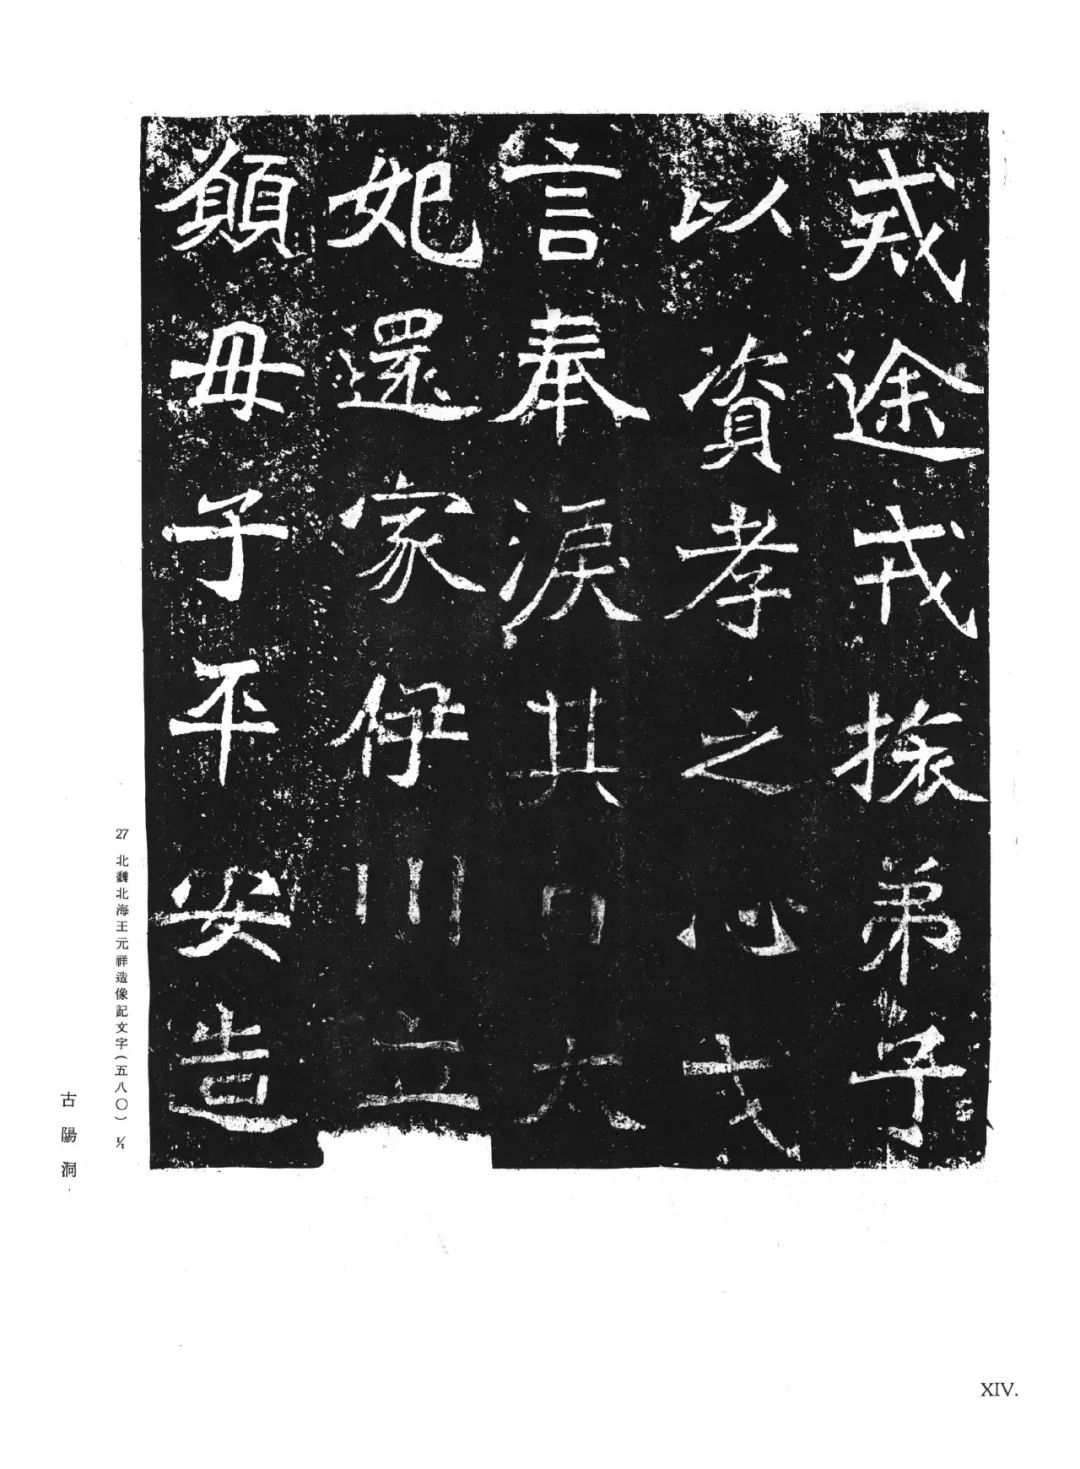 戒途戎旅弟子
以資孝之心戈
言奉淚其日太
妃還家伊川立
願母子平安造
27 北魏北海王元祥造像記文字(五八〇) 1/1
古陽洞
XIV.